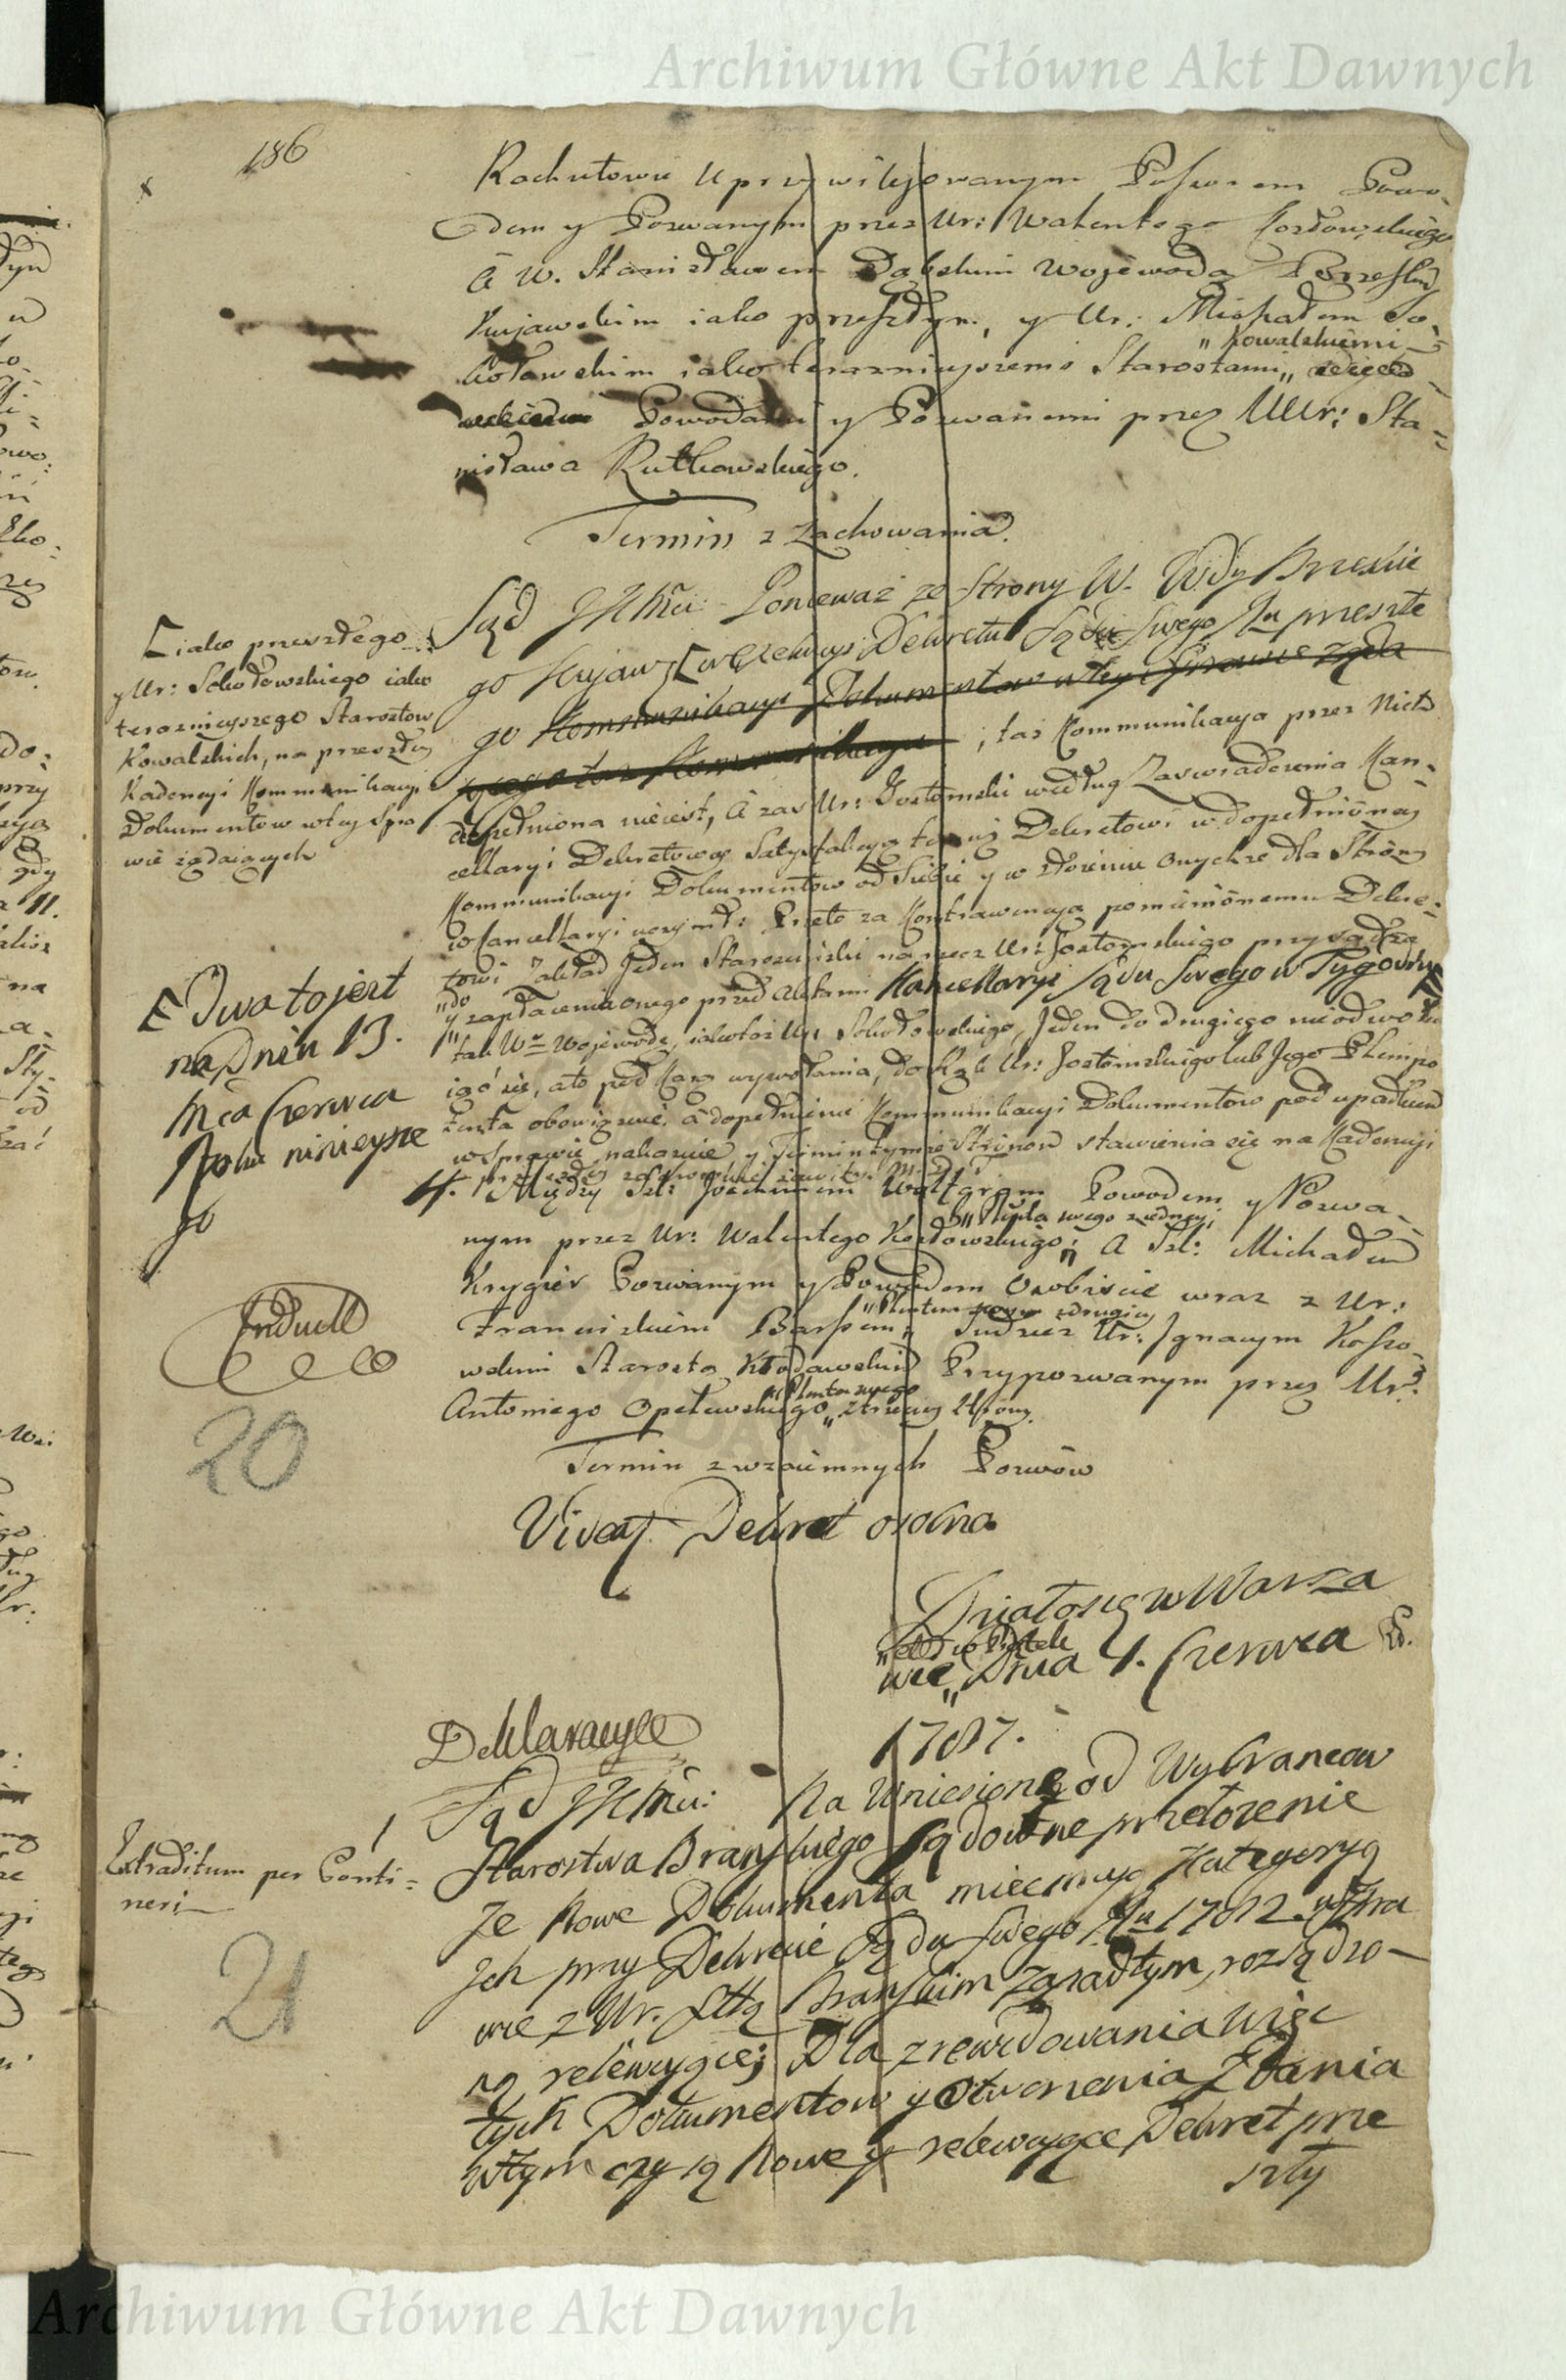 Archiwum Główne Akt Dawnych
186
Rachutowie Uprzywilejowanym Powo-
dem y Pozwanym przez Ur: Walentego Kozłowskiego
A W. Stanisławem Dąbskim Wojewodą
Kujawskim iako przeszłym, y Ur: Michałem So-
kołowskim iako teraznieyszemi Starostami „Kowalskiemi
Powodami y Pozwanemi przez UUr: Sta-
nisława Rutkowskiego.
Termin z Zachowania.
Sąd JKMci Ponieważ ze Strony W. Wdy Brzeskie
go Kujaw: [względem Dekretu Sądu Swego przeszłe
go Kommunikacyi Dokumentow w tey Sprawie żąda
iącego taż Kommunikacya; taż Kommunikacya przez Nich
dopełniona nieiest, A zas Ur: Gostomski według Zaswiadczenia Kan-
cellaryi Dekretowey Satysfakcyą temuż Dekretowi w dopełnioney
Kommunikacyi Dokumentow od Siebie y w złożeniu onychże dla Strony
w Kancellaryi uczynił: Przeto za Kontrawencyą pomienionemu Dekre-
towi Zakład Jeden Staroscinski na rzecz Ur: Gostomskiego przysądza
„do
y zapłacenia onego przed Aktami Kancellaryi Sądu Swego w Tygodni
tak W. Wojewodę, iakotoż Ur: Sokołowskiego, Jeden do drugiego nieodwołu
iąc się, a to pod Karą wywołania, do Rąk Ur: Gostomskiego lub Jego Plenipo
tenta obowiązuie. a dopełnienie Kommunikacyi Dokumentow pod upadkiem
w Sprawie nakazuie y Termin tymże Stronom stawienia się na Kadencyi
[iako przeszłego
y Ur: Sokołowskiego iako
teraznieyszego Starostow
Kowalskich, na przeszłey
Kadencyi Kommunikacyi
Dokumentow w tey Spra
wie żądaiących
[Dwa to jest
na Dnia 13.
Mca Czerwca
Roku ninieysze
go
4. Między Szl: Powodem y Pozwa-
nym przez Ur: Walentego Kozłowskiego „Plnpta swego z iedney; A Szl: Michałem
Krygier Pozwanym y Powodem Osobiscie wraz z Ur:
Franciszkiem „Plentem swym z drugiey Tudzież Ur: Ignacym Kosso-
wskim Starostą Kłodawskim Przypozwanym przez Ur:
Antoniego Opelewskiego „Plenta swego z trzeciey strony.
Induct
20
Termin z wzaiemnych Pozwów
Vivat Dekret osobno
Działo się w Warsza
wie „Dnia 4. Czerwca
1787.
Deklaracye
1
Sąd JKMci: Na Wniesione od Wybrancow
Starostwa Branskiego Sądowne przełożenie
Że Nowe Dokumenta maiące Kategoryą
Ich przy Dekrecie Sądu Swego Ru 1782 w Spra
wie z Ur. Sttą Branskim Zapadłym, rozsądzo-
ną relewuiące; Dla zrewidowania Więc
tych Dokumentow y Otworzenia Zdania
w tym czy są Nowe y relewuiące Dekret prze
szły
Extraditum per Conti-
neri
21
Archiwum Główne Akt Dawnych